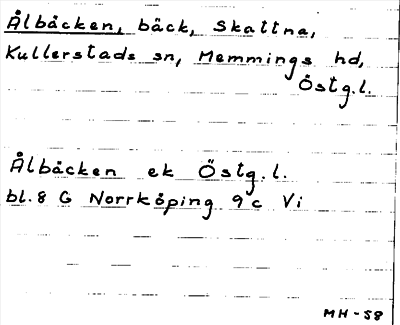 Ålbäcken, bäck, Skattna,
Kullerstads sn, Memmings hd,
Östg.l.
Ålbäcken ek Östg.l.
bl. 8 G Norrköping 9c Vi
MH-58